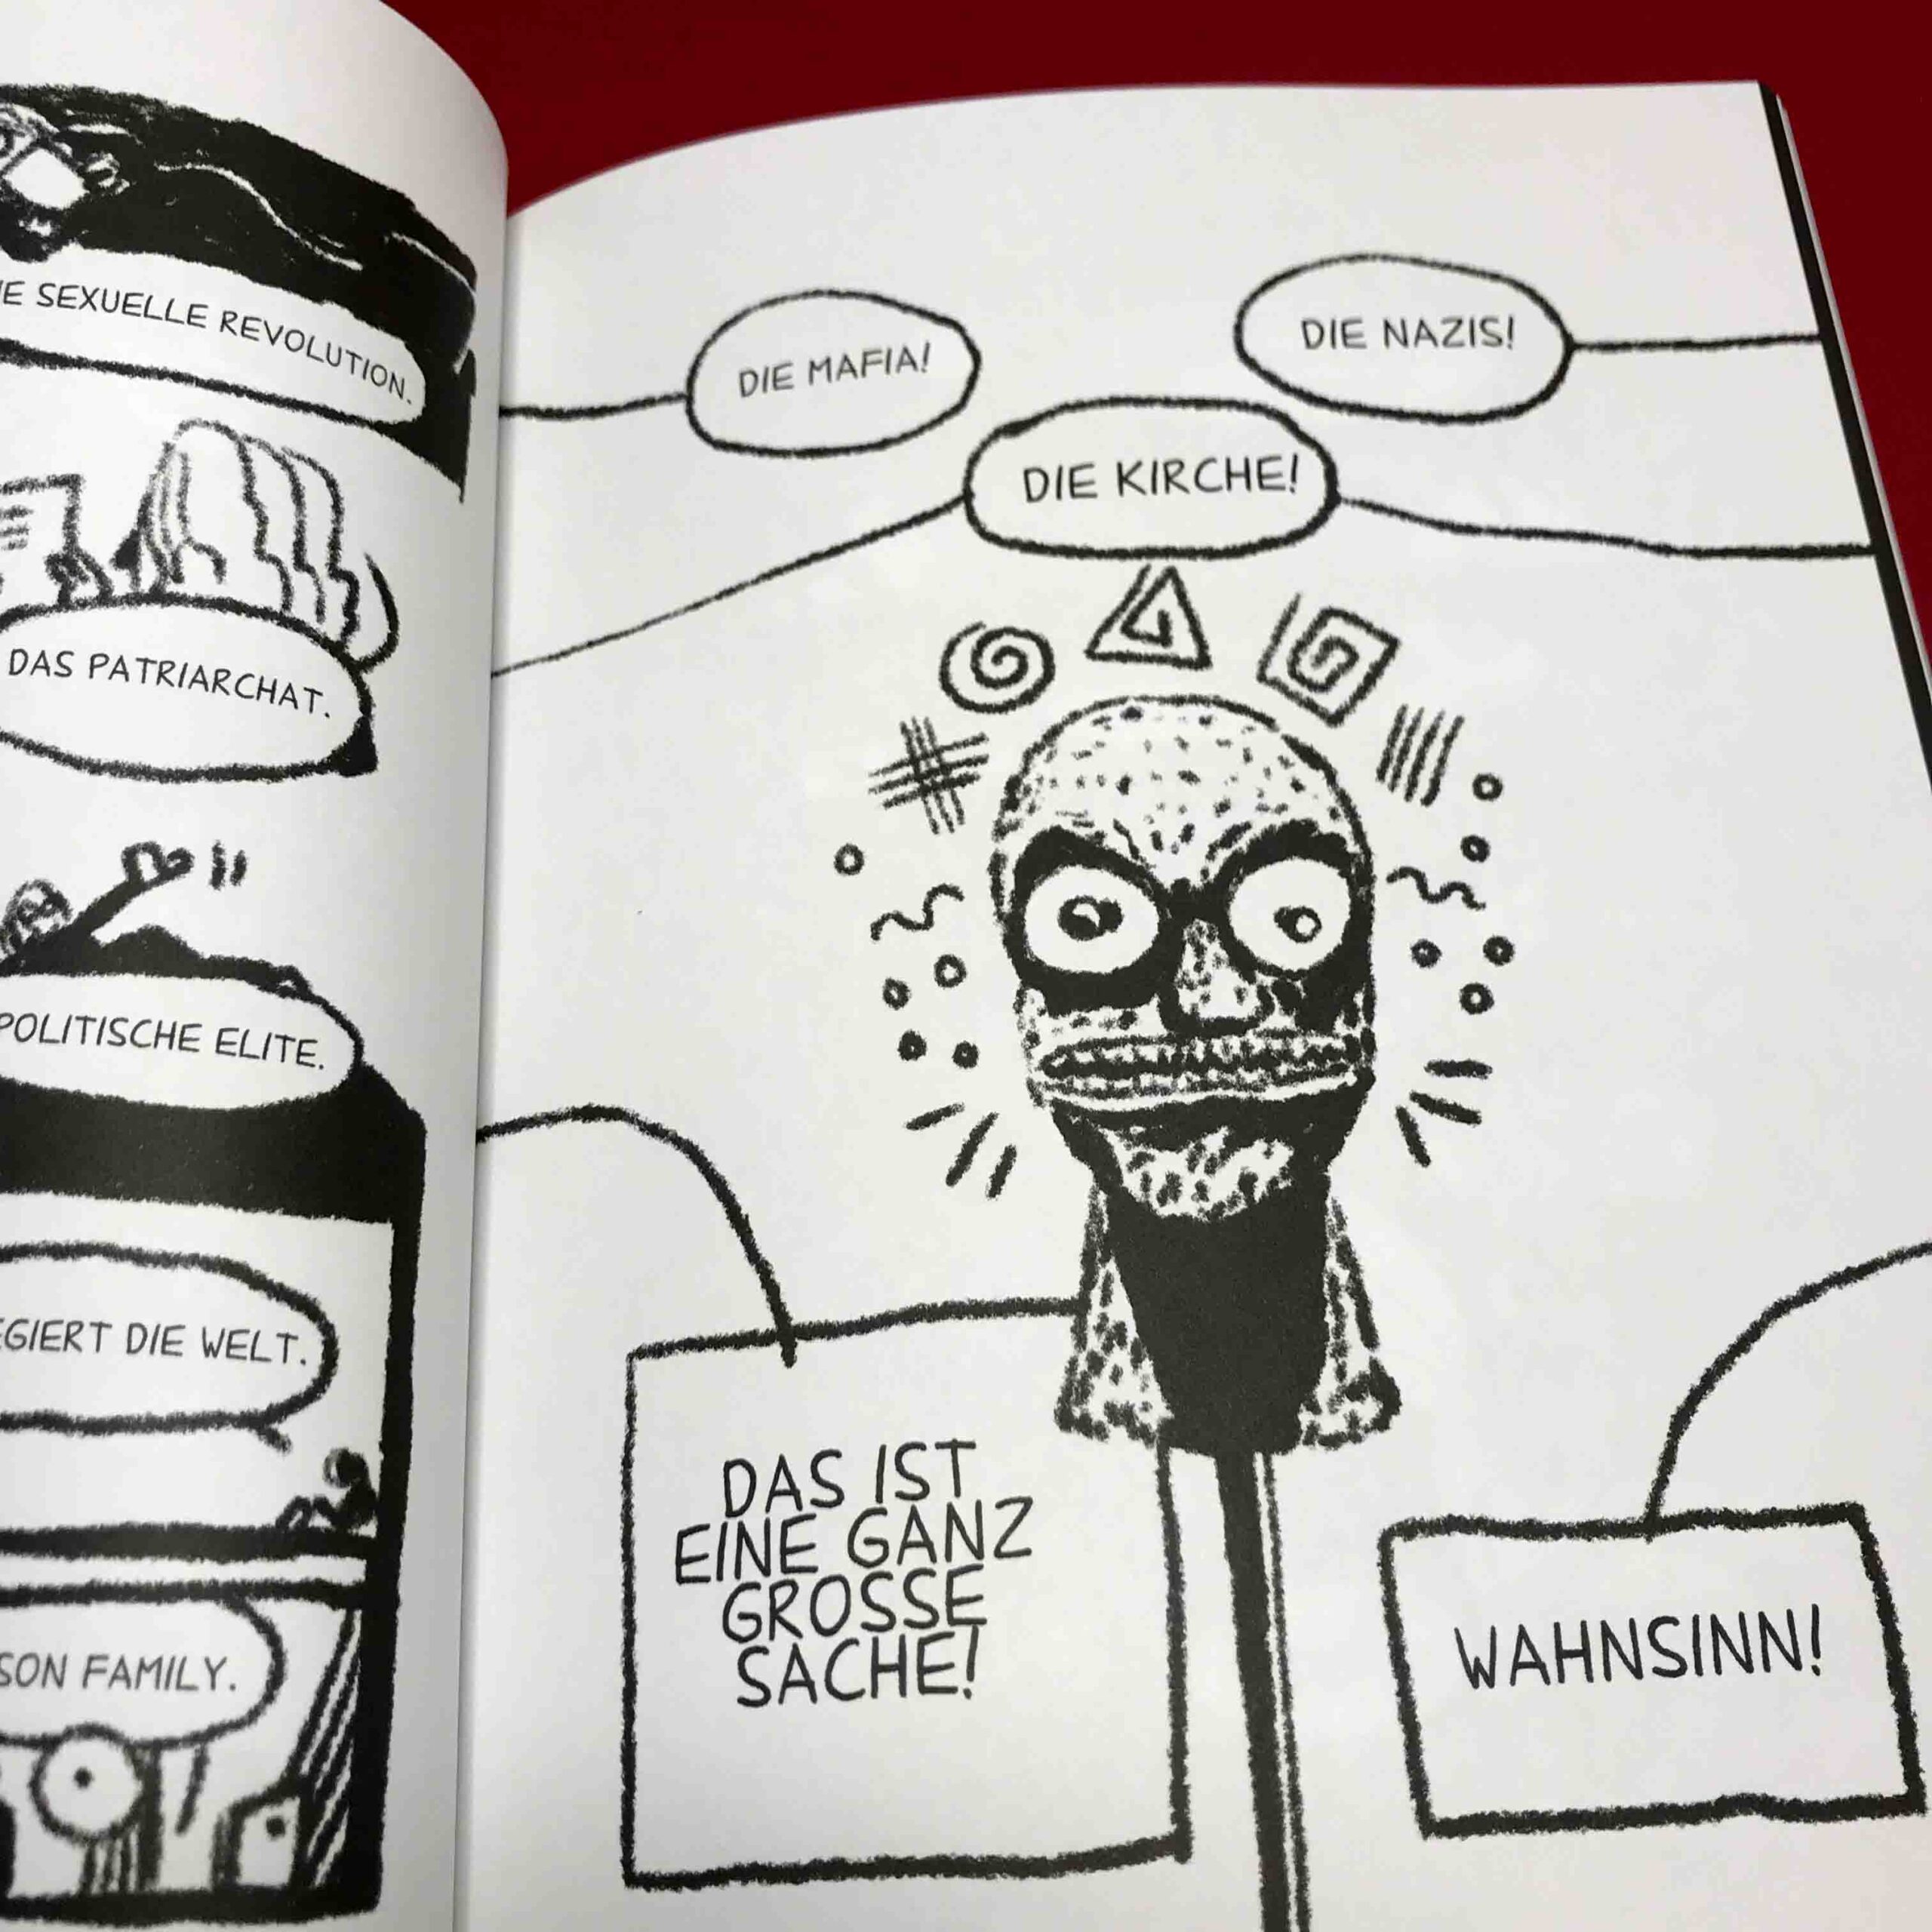 SEXUELLE REVOLUTION.
DAS PATRIARCHAT.
POLITISCHE ELITE.
DIE WELT.
FAMILY.
DIE MAFIA!
DIE NAZIS!
DIE KIRCHE!
DAS IST
EINE GANZ
GROSSE
SACHE!
WAHNSINN!